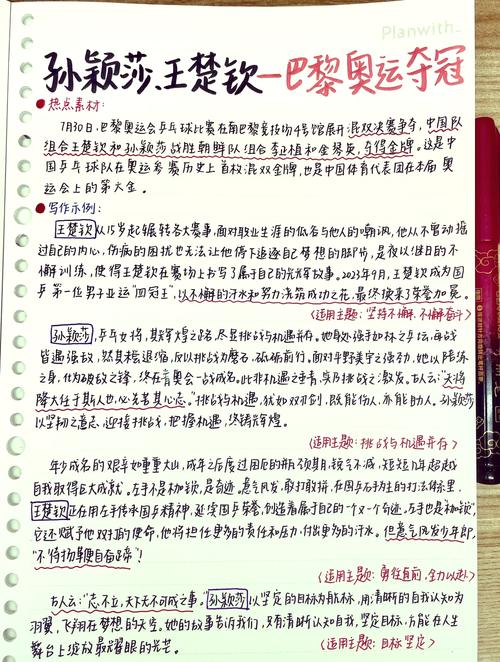 Planwith_
孙颖莎、王楚钦—巴黎奥运夺冠
热点素材:
7月30日,巴黎奥运会乒乓球比赛在南巴黎竞技场4号馆展开混双决赛争夺,中国队
组合王楚钦和孙颖莎战胜朝鲜队组合李正植和金琴英,夺得金牌。这是中
国乒乓球队在奥运参赛历史上首枚混双金牌,也是中国体育代表团在本届奥
运会上的第六金。
写作示例:
王楚钦从15岁起辗转各大赛事,面对职业生涯的低谷与他人的嘲讽,他从不曾动摇
过自己的内心,伤病的困扰也无法让他停下追逐自己梦想的脚步,是夜以继日的不
懈训练,使得王楚钦在赛场上书写了属于自己的光辉故事。2023年9月,王楚钦成为国
乒第一位男子亚运"四冠王",以不懈的汗水和努力浇筑成功之花,最终换来了荣誉加冕。
(适用主题:坚持不懈、不懈奋斗)
孙颖莎,乒乓女将,其辉煌之路,尽显挑战与机遇并存。她身处强手如林之乒坛,每战
皆遇强敌,然其未尝退缩,反以挑战为磨石,砥砺前行。面对平野美宇之强劲,她以陪练
之身,化为破敌之锋,终在青奥会一战成名。此非机遇之垂青,实乃挑战之激发。古人云:"天将
降大任于斯人也,必先苦其心志。"挑战与机遇,犹如双刃剑,既能伤人,亦能助人。孙颖莎
以坚韧之意志,迎接挑战,把握机遇,终铸辉煌。
(适用主题:挑战与机遇并存)
年少成名的艰辛如重重大山,成年之后度过困厄的瓶颈期,锐气不减,短短几年超越
自我取得巨大成就。左手不是枷锁,是奇迹。意气风发,敢打敢拼,在国乒右手为主的打法体系里,
王楚钦正在用左手传承国乒精神,延续国乒荣誉,创造着属于自己的一个又一个奇迹。左手也是"枷锁",
它还赋予他双打的使命,他将担任更多的责任和压力,付出更多的汗水。但意气风发少年郎,
"不待扬鞭自奋蹄"!
(适用主题:勇往直前、全力以赴)
古人云:"志不立,天下无可成之事。"孙颖莎以坚定的目标为航标,用清晰的自我认知为
羽翼,飞翔在梦想的天空。她的故事告诉我们,只有清晰认知自我,坚定目标,方能在人生
舞台上绽放最耀眼的光芒。
(适用主题:目标坚定)